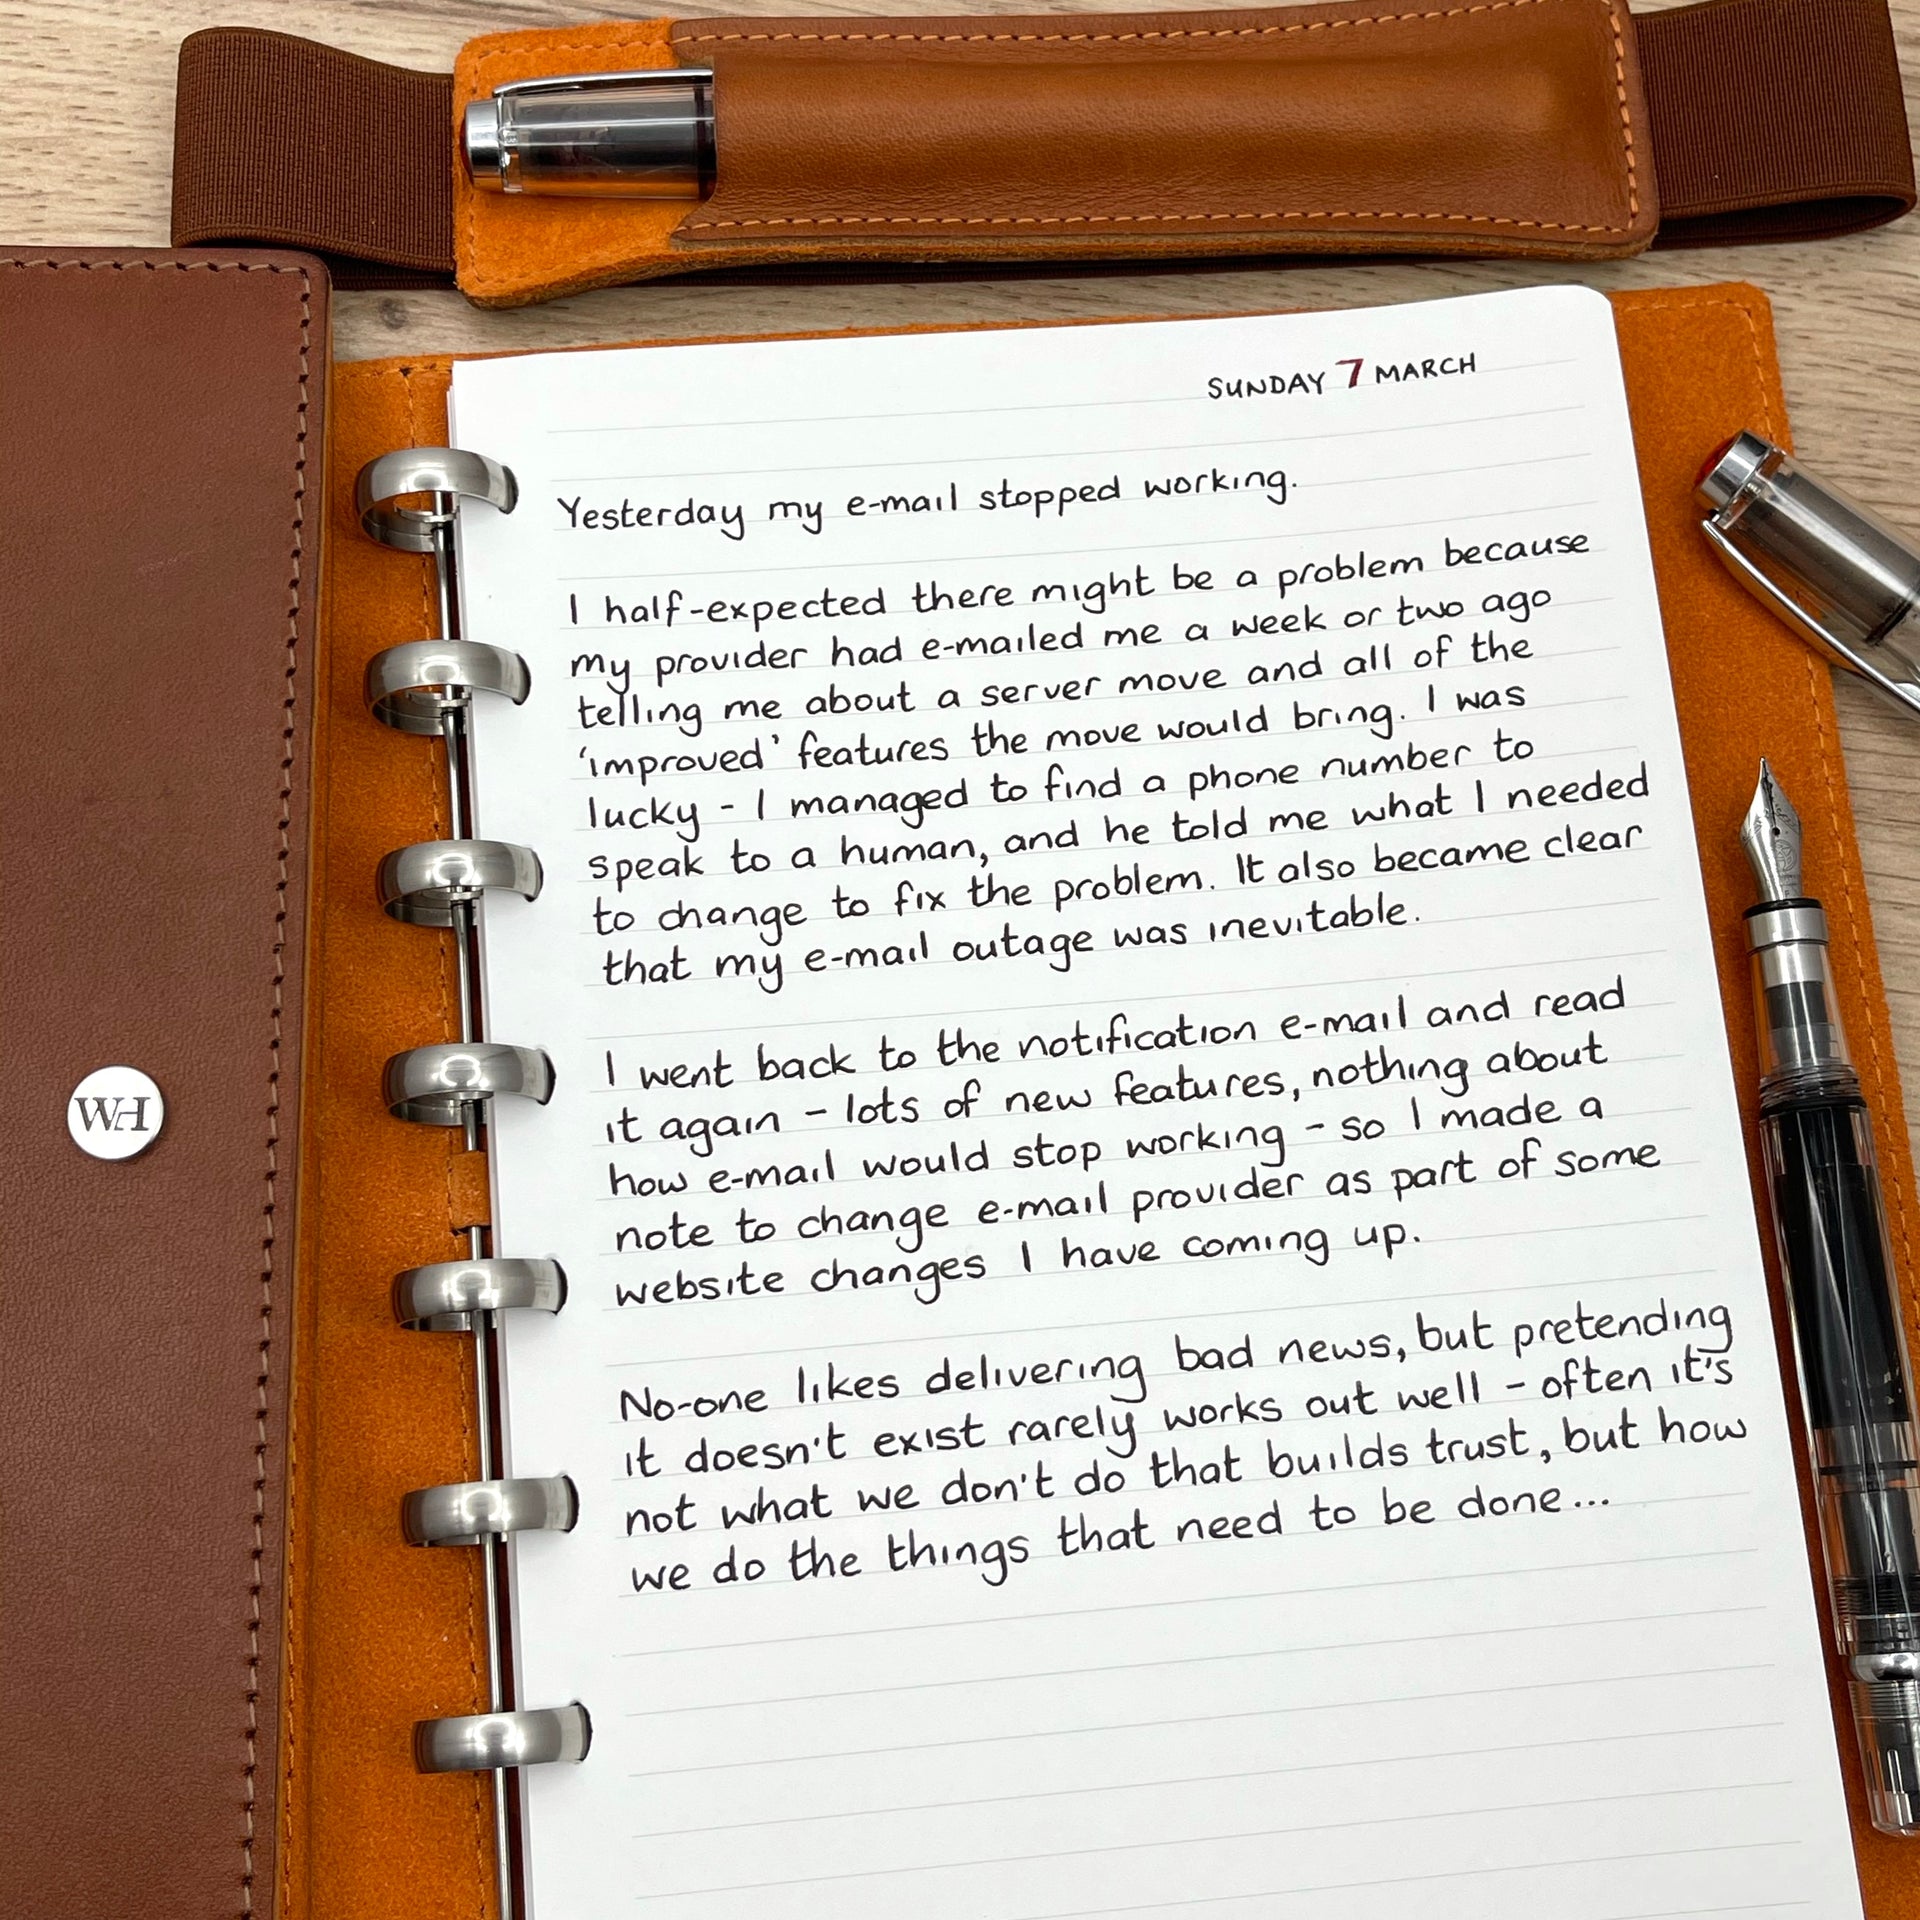 SUNDAY 7 MARCH
Yesterday my e-mail stopped working.
I half-expected there might be a problem because
my provider had e-mailed me a week or two ago
telling me about a server move and all of the
'improved' features the move would bring. I was
lucky - I managed to find a phone number to
speak to a human, and he told me what I needed
to change to fix the problem. It also became clear
that my e-mail outage was inevitable.
I went back to the notification e-mail and read
it again - lots of new features, nothing about
how e-mail would stop working - so I made a
note to change e-mail provider as part of some
website changes I have coming up.
No-one likes delivering bad news, but pretending
it doesn't exist rarely works out well - often it's
not what we don't do that builds trust, but how
we do the things that need to be done...
WH